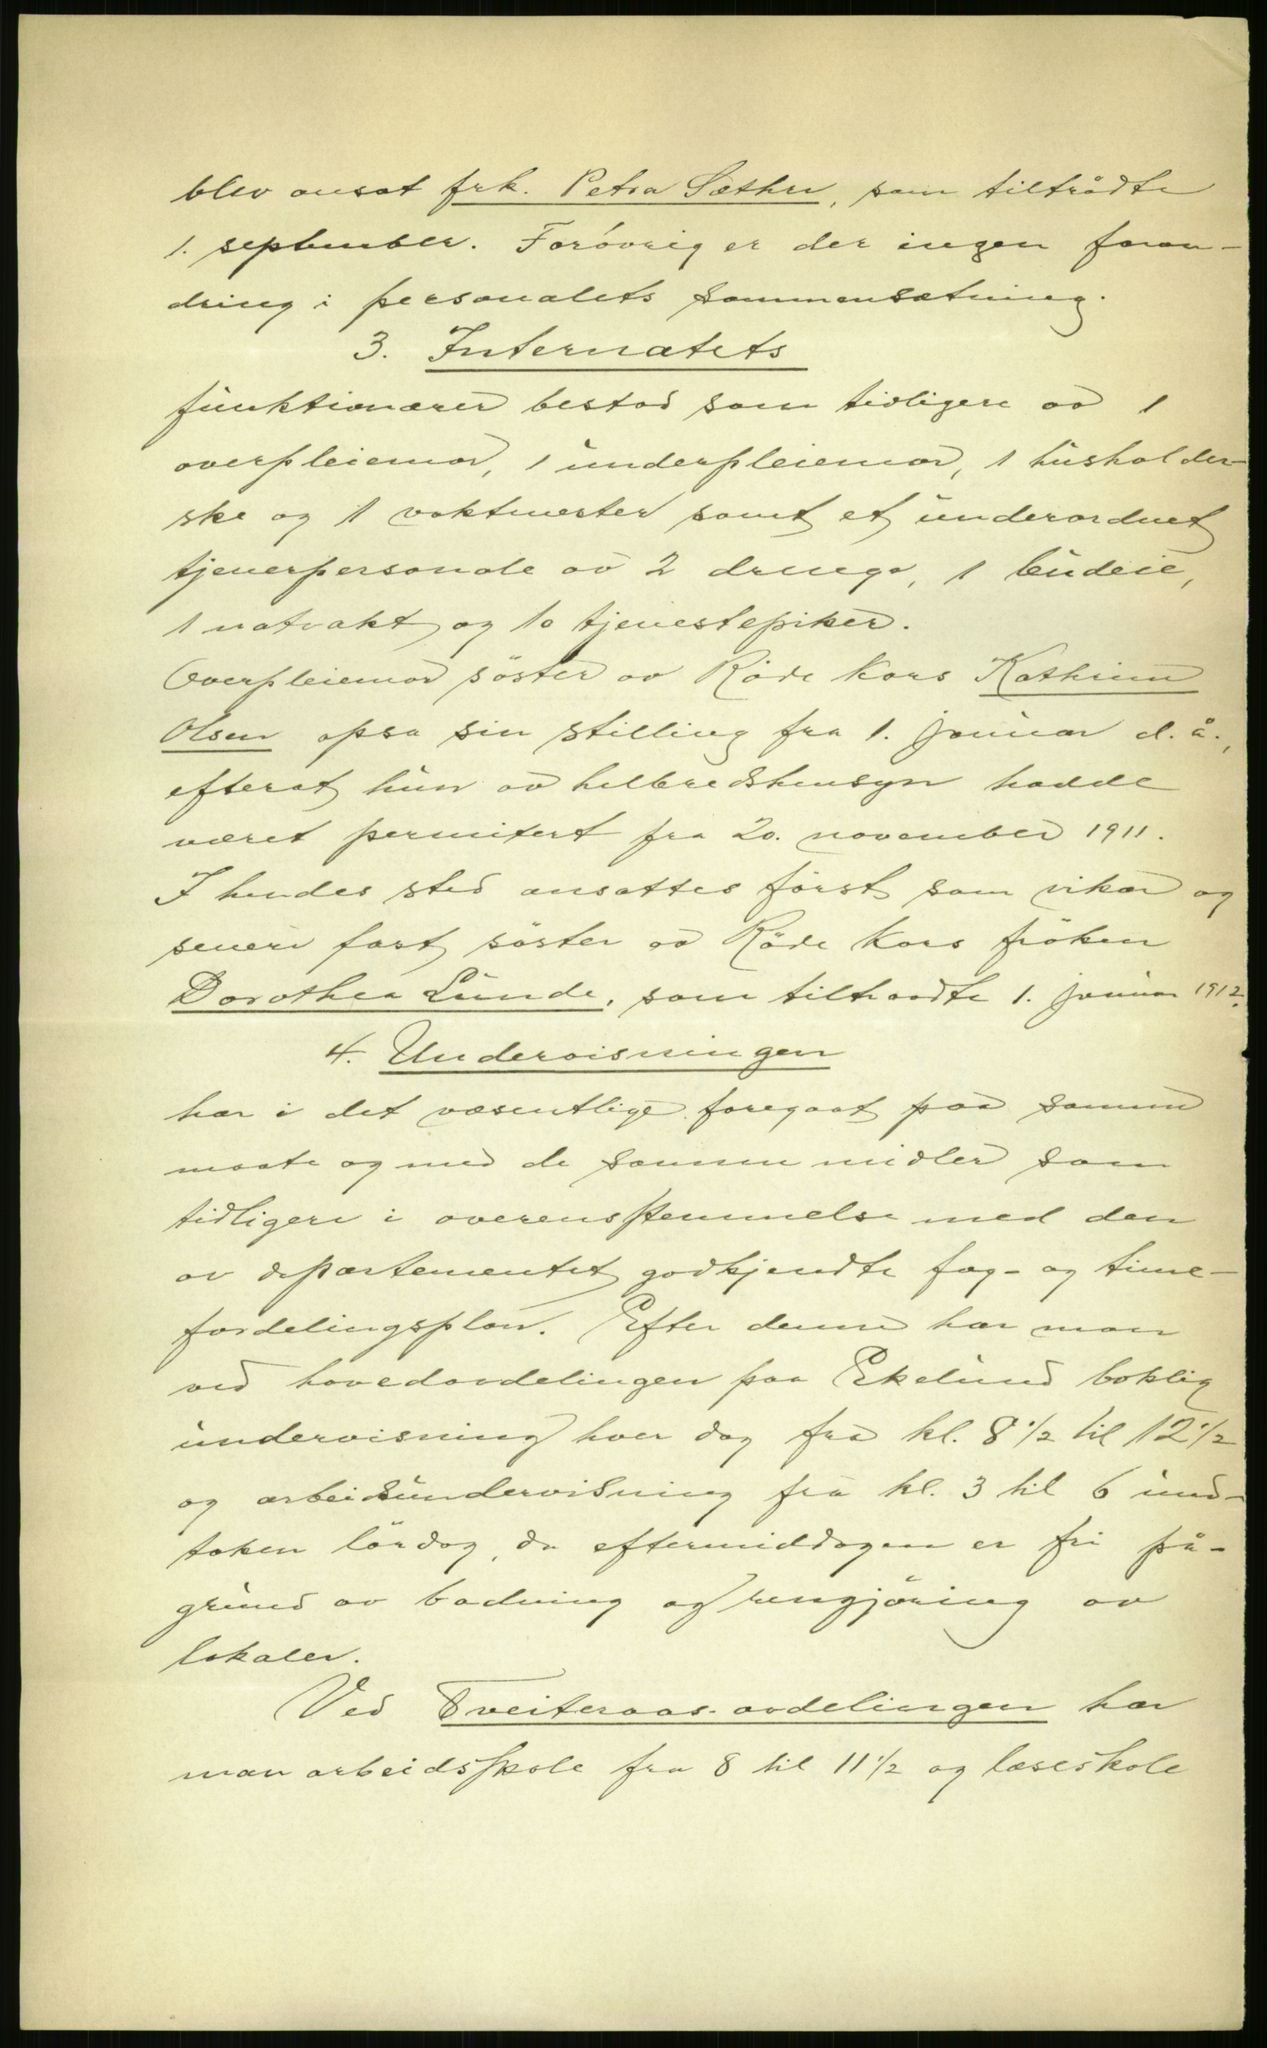 blev ansat frk. Petra Sæther, som tiltrådte
1. september. Forøvrig er der ingen foran-
dring i personalets sammensætning.
3. Internatets
funktionærer bestod som tidligere av 1
overpleiemor, 1 underpleiemor, 1 husholder-
ske og 1 vaktmester samt et underordnet
tjenerpersonale av 2 drenge, 1 budeie,
1 natvakt og 10 tjenestepiker.
Overpleiemor søster av Røde Kors Kathrine
Olsen opsa sin stilling fra 1. januar d. å.,
efterat hun av helbredshensyn hadde
været permitert fra 20. november 1911.
I hendes sted ansattes først som vikar og
senere fast søster av Røde Kors frøken
Dorothea Lunde, som tiltraadte 1. januar 1912.
4. Undervisningen
har i det væsentlige foregaat paa samme
maate og med de samme midler som
tidligere i overensstemmelse med den
av departementet godkjendte fag- og time-
fordelingsplan. Efter denne har man
ved hovedavdelingen paa Ekelund boklig
undervisning hver dag fra kl. 8 1/2 til 12 1/2
og arbeidsundervisning fra kl. 3 til 6 und-
taken lørdag, da eftermiddagen er fri på-
grund av badning og rengjøring av
lokaler.
Ved Tveiteraas-avdelingen har
man arbeidsskole fra 8 til 11 1/2 og læseskole